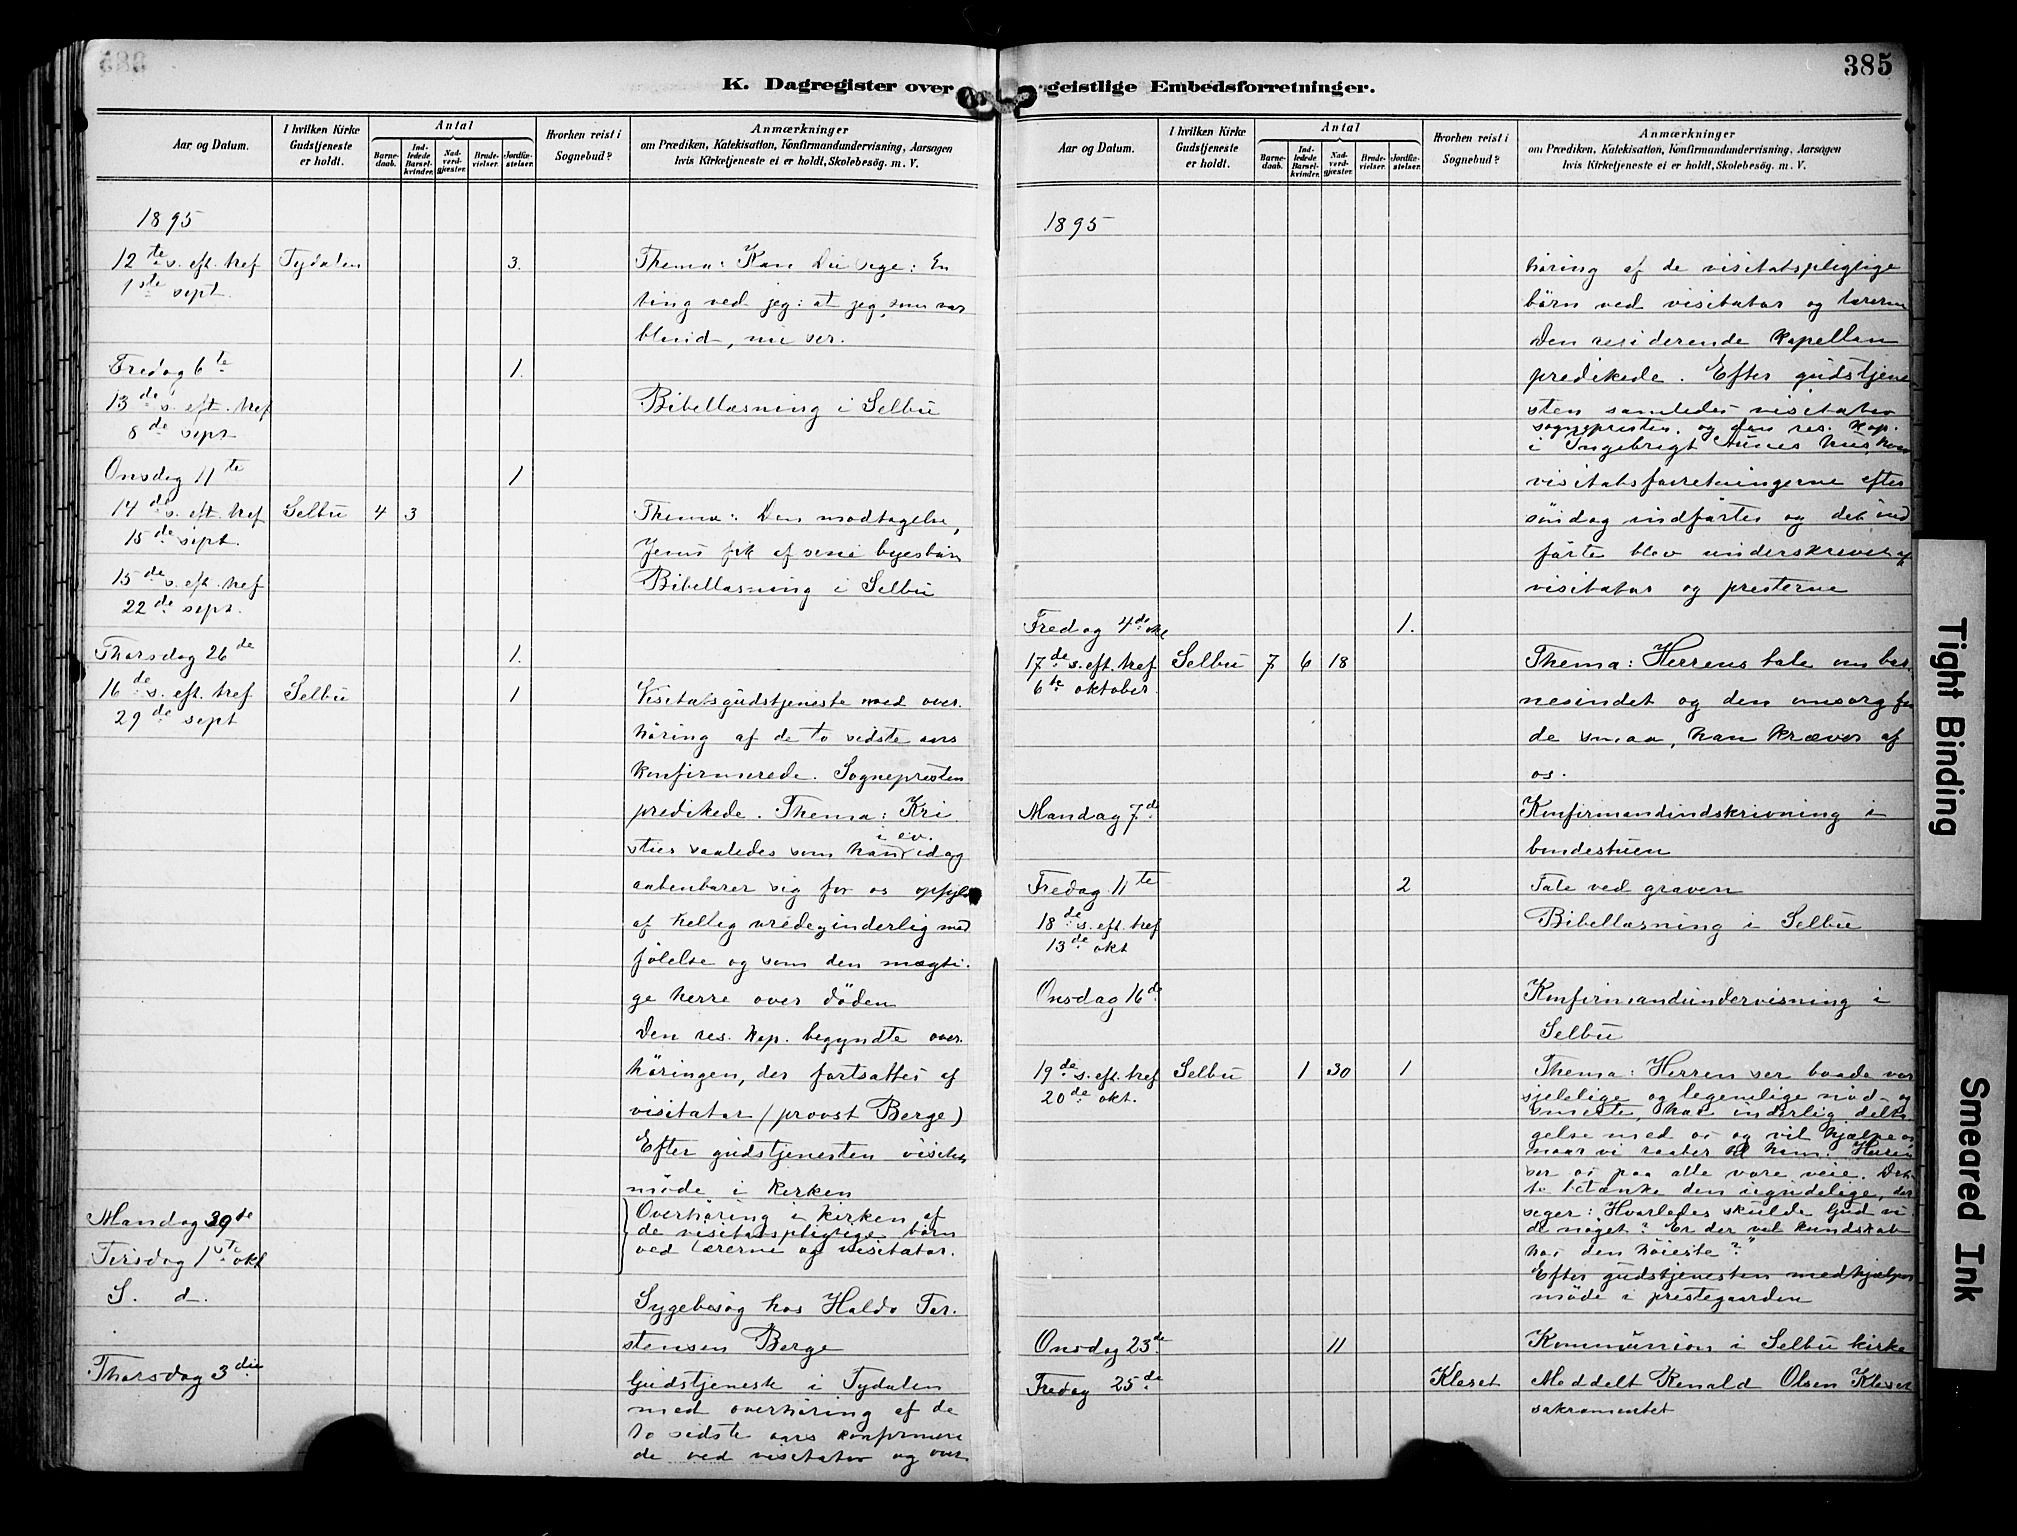 385
K. Dagregister over geistlige Embedsforretninger.
Aar og Datum.
I hvilken Kirke Gudstjeneste er holdt.
Antal
Barnedaab.
Indledede Barselkvinder.
Nadverdgjæster.
Brudevielser.
Jordfæstelser.
Hvorhen reist i Sognebud?
Anmærkninger
om Prædiken, Katekisation, Konfirmandundervisning, Aarsagen
hvis Kirketjeneste ei er holdt, Skolebesøg. m. V.
1895
12te s. eft. tref Tydalen 3. Thema: Kan Du sige: En
1ste sept. ting ved jeg: at jeg, som var
blind, nu ser.
Fredag 6te 1.
13de s. eft. tref Bibellæsning i Selbu
8de sept
Onsdag 11te 1
14de s. eft. tref Selbu 4 3 Thema: Den modtagelse,
15de sept. Jesus fik af sine bysbørn
15de s. eft. tref Bibellæsning i Selbu
22de sept.
Thorsdag 26de 1.
16de s. eft. tref Selbu 1 Visitatsgudstjeneste med over-
29de sept høring af de to sidste aars
konfirmerede. Sognepresten
predikede. Thema: Kri
stus saaledes som han i ev. idag
aabenbarer sig for os opfyldt
af hellig vrede, inderlig med
følelse og som den mægti-
ge herre over døden
Den res. kap. begyndte over-
høringen, der fortsattes af
visitator (provst Berge)
Efter gudstjenesten visitats
møde i kirken
Mandag 30te Overhøring i kirken af
de visitatspligtige børn
Tirsdag 1ste okt ved lærerne og visitator.
S. d. Sygebesøg hos Haldo Tor-
stensen Berge
Thorsdag 3die Gudstjeneste i Tydalen
med overhøring af de
to sidste aars konfirmere
de ved visitator og over
Aar og Datum.
I hvilken Kirke Gudstjeneste er holdt.
Antal
Barnedaab.
Indledede Barselkvinder.
Nadverdgjæster.
Brudevielser.
Jordfæstelser.
Hvorhen reist i Sognebud?
Anmærkninger
om Prædiken, Katekisation, Konfirmandundervisning, Aarsagen
hvis Kirketjeneste ei er holdt, Skolebesøg. m. V.
1895
høring af de visitatspligtige
børn ved visitator og lærerne
Den residerende kapellan
predikede. Efter gudstjene
sten samledes visitator
sognepresten, og den res. kap.
i Ingebrigt Aunes hus,
visitatsforretningerne efter
søndag indførtes og det ind
førte blev underskrevet af
visitator og presterne
Fredag 4de okt 1.
17de s. eft. tref Selbu 7 6 18 Thema: Herrens tale om bar-
6te oktober. nesindet og den omsorg for
de smaa, han kræver af
os.
Mandag 7de Konfirmandindskrivning i
bondestuen
Fredag 11te 2 Tale ved graven
18de s. eft. tref Bibellæsning i Selbu
13de okt
Onsdag 16de Konfirmandundervisning i
Selbu
19de s. eft. tref Selbu 1 30 1 Thema: Herren ser baade vor
20de okt. sjelelige og legemlige nød og
smerte, har inderlig delta
gelse med os og vil hjælpe os
naar vi raaber til ham. Herren
ser os paa alle vore veie. Det
te betænke den ugudelige, der
siger: Hvorledes skulde Gud vi
de noget? Er der vel kundskab
hos den høieste?"
Efter gudstjenesten medhjælper
møde i prestegaarden
Onsdag 23de 11 Kommunion i Selbu kirke
Fredag 25de Kløset Meddelt Renald Olsen Kløset
sakramentet
Tight Binding
Smeared Ink